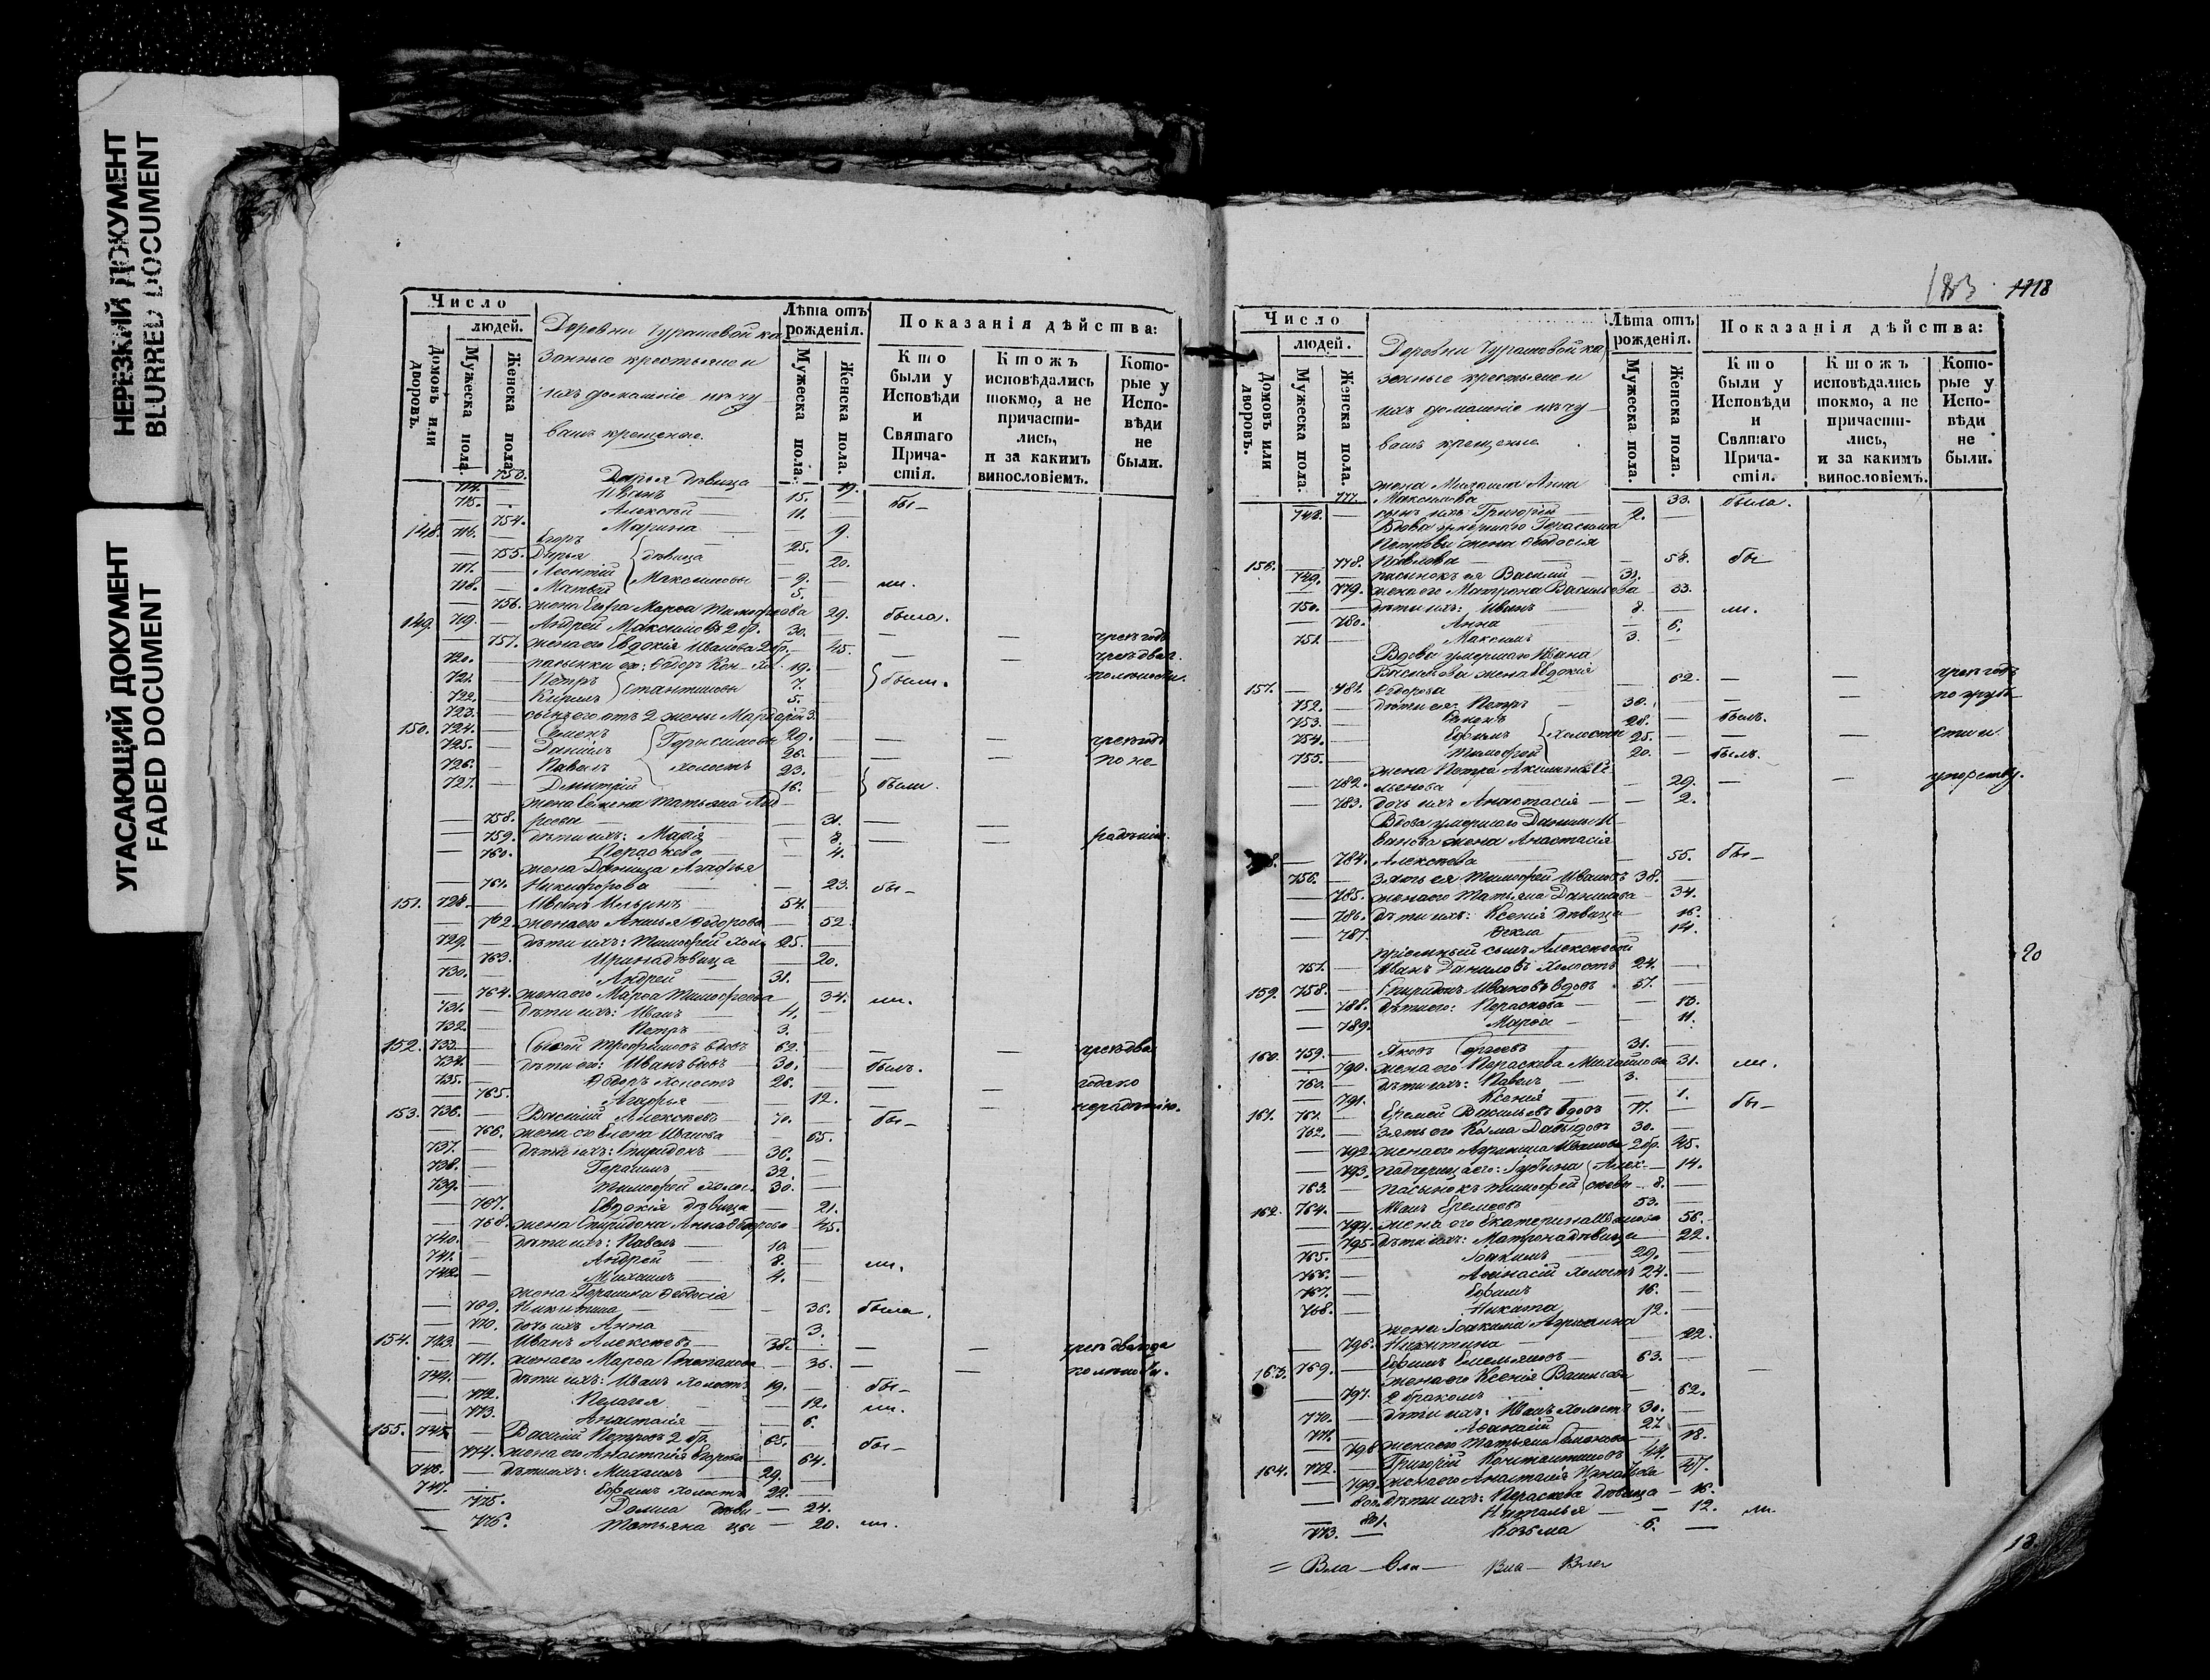 НЕРЕЗКИЙ ДОКУМЕНТ
BLURRED DOCUMENT
УГАСАЮЩИЙ ДОКУМЕНТ
FADED DOCUMENT
Число
людей.
Домовъ или дворовъ.
Мужеска пола.
Женска пола.
Деревни Чурашевой ка
зенные крестьяне и
ихъ домашніе изъ чу
вашъ крещеные.
Лѣта отъ рожденія.
Мужеска пола.
Женска пола.
Показанія дѣйства:
Кто были у Исповѣди и Святаго Причастія.
Ктожъ исповѣдались токмо, а не причастились, и за какимъ винословіемъ.
Которые у Исповѣди не были.
753. Дарья дѣвица — 19.
714. — Иванъ 15. —
715. — Алексѣй 11. — бы-
— 754. Марина — 9.
148. 716. — Егоръ 25. —
— 755. Дарья дѣвица — 20.
717. — Леонтій Максимовы 9. —
718. — Матвей 5. — ли.
— 756. жена Егора Марѳа Тимофеева 29. была.
149. 719. — Андрей Максимовъ 2 бр. 30. — — — чрезъ годъ
— 757. жена его Евдокія Иванова 2 бр. — 45. — — чрезъ два г.
720. — пасынки его: Ѳедоръ Кон- хол. 19. — по лѣности.
721. — Петръ 7. — были.
722. — Кирилъ стантиновы 5. —
723. — сынъ его отъ 2 жены Маркарій 3.
150. 724. — Семенъ Герасимовы 29. — — —
725. — Даніилъ 26. — — — по не-
726. — Павелъ холостъ 23. —
727. — Дмитрій 16. — были.
жена Семена Татьяна Анд-
— 758. реева — 31. — —
— 759. дѣти ихъ: Марія — 8. — — радѣнію.
— 760. Пераскева — 4.
жена Данила Агафья
— 761. Никифорова — 23. бы-
151. 728. — Иванъ Ильинъ 54. —
— 762. жена его Анисья Ѳедорова — 52.
729. — дѣти ихъ: Тимофей хол. 25. —
— 763. Ирина дѣвица — 20.
730. — Андрей 31. —
— 764. жена его Марѳа Тимофеева 34. ли.
731. — дѣти ихъ: Иванъ —
732. — Петръ 3.
152. 733. — Сысой Трофимовъ вдовъ 62. — — — чрезъ два
734. — дѣти его: Иванъ вдовъ 30. — былъ.
735. — Ѳедоръ холостъ 26. — — годано
— 765. Агафья — 12. — — нерадѣнію.
153. 736. — Василій Алексѣевъ 70. — бы-
— 766. жена его Елена Иванова — 65.
737. — дѣти ихъ: Спиридонъ 36. —
738. — Герасимъ 32. —
739. — Тимофей холос. 30. —
— 767. Евдокія дѣвица — 21.
— 768. жена Спиридона Анна Ѳедорова 45.
740. — дѣти ихъ: Павелъ 10. —
741. — Андрей 8. — ли.
742. — Михаилъ 4. —
жена Герасима Ѳеодосія
— 769. Никитина — 36. была.
— 770. дочь ихъ Анна — 3.
154. 743. — Иванъ Алексѣевъ 38. — — — чрезъ два года
— 771. жена его Марѳа Степанова — 36. — — по лѣности.
744. — дѣти ихъ: Иванъ холостъ 19. — бы-
— 772. Пелагея — 12. ли.
— 773. Анастасія — 6.
155. 745. — Василій Петровъ 2 бр. 65. — бы-
— 774. жена его Анастасія Егорова — 64.
746. — дѣти ихъ: Михаилъ 29. —
747. — Ефимъ холостъ 22. —
— 775. Домна дѣви- — 24.
— 776. Татьяна цы — 20. ли.
183 1118
Число
людей.
Домовъ или дворовъ.
Мужеска пола.
Женска пола.
Деревни Чурашевой ка
зенные крестьяне и
ихъ домашніе изъ чу
вашъ крещеные.
Лѣта отъ рожденія.
Мужеска пола.
Женска пола.
Показанія дѣйства:
Кто были у Исповѣди и Святаго Причастія.
Ктожъ исповѣдались токмо, а не причастились, и за какимъ винословіемъ.
Которые у Исповѣди не были.
жена Михаила Анна
777. Максимова — 33. была.
748. — сынъ ихъ Григорій 2. —
Вдова умершаго Герасима
Петрова жена Ѳеодосія
156. — 778. Павлова — 58. бы-
749. — пасынокъ ея Василій 33. —
— 779. жена его Матрона Васильева 33.
750. — дѣти ихъ: Иванъ 8. — ли.
— 780. Анна — 6.
751. — Максимъ 3. —
Вдова умершаго Ивана
Васильева жена Евдокія
157. — 781. Ѳедорова — 62. — — чрезъ годъ
752. — дѣти ея: Петръ 30. — — — по грубо-
753. — Семенъ 28. — былъ.
754. — Ефимъ холосты 25. — — — сти и
755. — Тимофей 20. — былъ.
жена Петра Акилина Се-
— 782. менова — 29. — — упорству.
— 783. дочь ихъ Анастасія — 2.
Вдова умершаго Данила И-
ванова жена Анастасія
8. — 784. Алексѣева — 55. бы-
756. — Зять ея Тимофей Ивановъ 38. —
— 785. жена его Татьяна Данилова — 34.
— 786. дѣти ихъ: Ксенія дѣвица — 16.
— 787. Ѳекла — 14.
пріемный сынъ Алексѣевой
757. — Иванъ Даниловъ холостъ 24. —
20
159. 758. — Спиридонъ Ивановъ вдовъ 57. —
— 788. дѣти его: Пераскева — 13.
— 789. Марѳа — 11.
160. 759. — Яковъ Сергеевъ 31. —
— 790. жена его Пераскева Михайлова 31. ли.
760. — дѣти ихъ: Павелъ 3. —
— 791. Ксенія — 1.
161. 761. — Еремей Васильевъ вдовъ 77. — бы-
762. — Зять его Козма Давыдовъ 30. —
— 792. жена его Агрипина Иванова 2 бр. 45.
— 793. падчерица его: Іустина Алек- — 14.
763. — пасынокъ Тимофей сѣевы 8. —
162. 764. — Иванъ Еремеевъ 53. —
— 794. жена его Екатерина Иванова 56.
— 795. дѣти ихъ: Матрона дѣвица — 22.
765. — Іоакимъ 29. —
766. — Аѳанасій холостъ 24. —
767. — Ефимъ 16. —
768. — Никита 12. —
жена Іоакима Агрипина
— 796. Никитина — 22.
163. 769. — Ефимъ Емельяновъ 63. —
жена его Ксенія Васильева
— 797. 2 бракомъ — 62.
770. — дѣти ихъ: Иванъ холостъ 30. —
771. — Аѳанасій 27. —
— 798. жена его Татьяна Семенова — 18.
164. 772. — Григорій Константиновъ 44. —
— 799. жена его Анастасія Игнатьева 47.
— 800. дѣти ихъ: Пераскева дѣвица — 16.
— 801. Наталья — 12. ли.
773. — Козьма 6. —
13